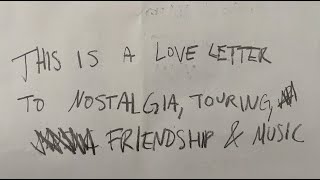 THIS IS A LOVE LETTER
TO NOSTALGIA, TOURING,
FRIENDSHIP & MUSIC